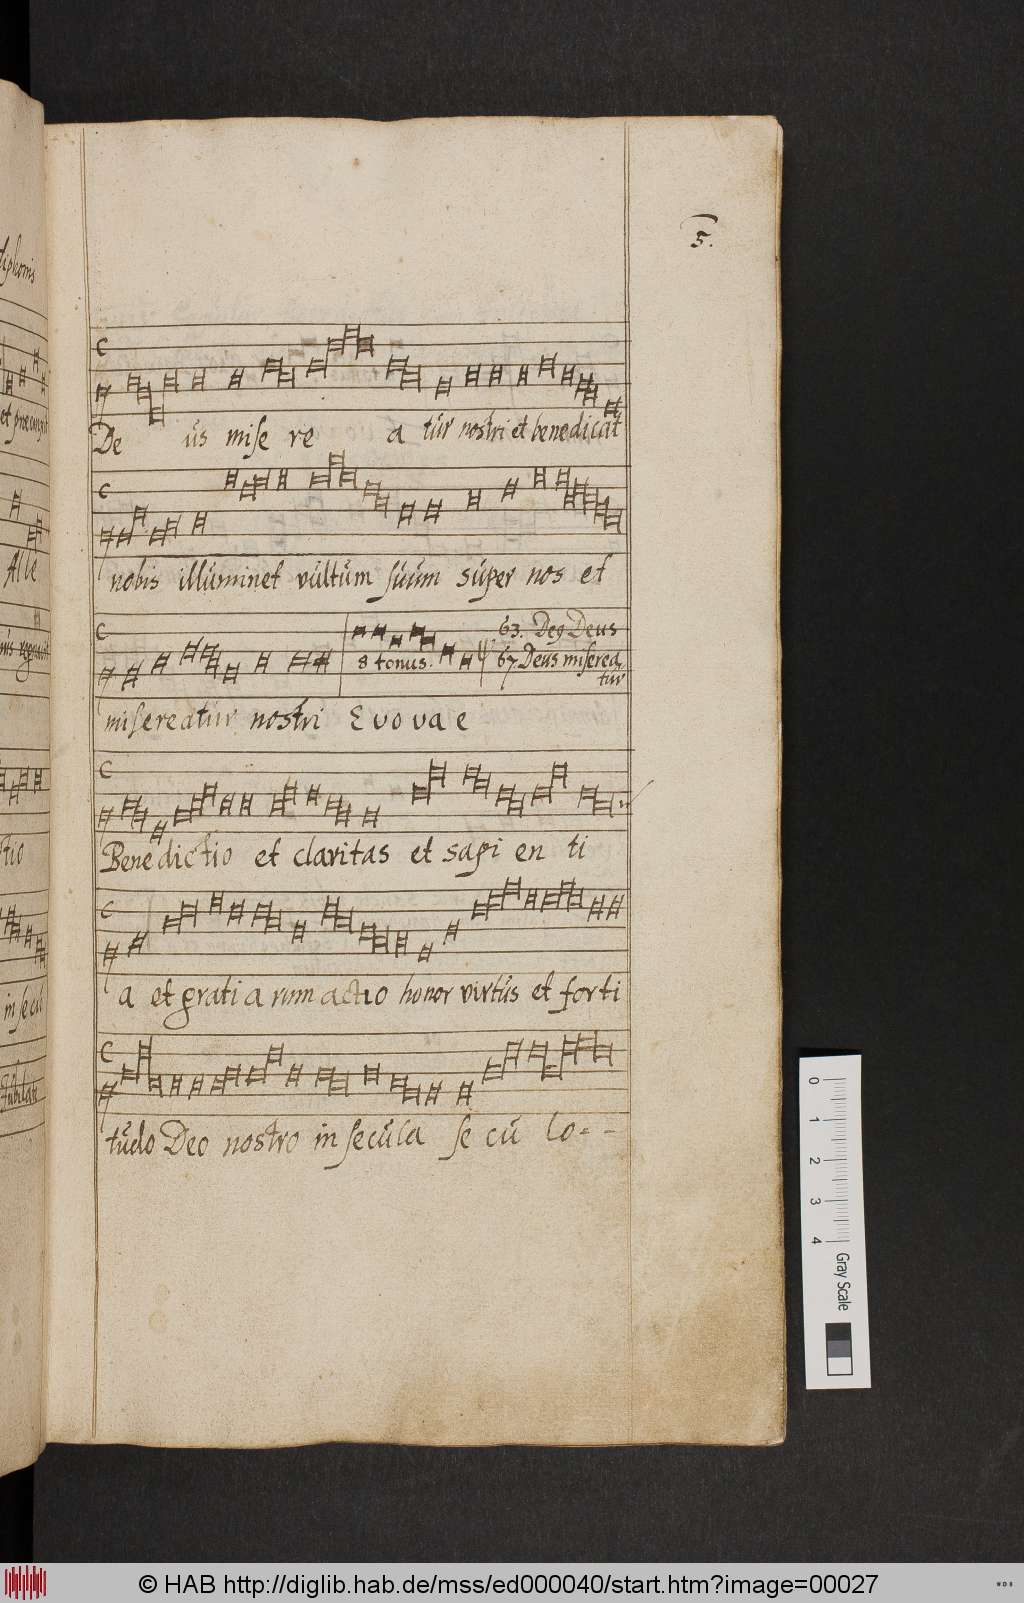 5.
De us mise re a tur nostri et benedicat
nobis illuminet vultum suum super nos et
63. Deg Deus
8 tonus. 67 Deus miserea
tur
misereatur nostri Evovae
Benedictio et claritas et sapi en ti
a et grati a rum actio honor virtus et forti
tudo Deo nostro in secula se cu lo--
et
Alle
ctio
in se cul
Jubilat
0
1
2
3
4
Gray Scale
© HAB http://diglib.hab.de/mss/ed000040/start.htm?image=00027